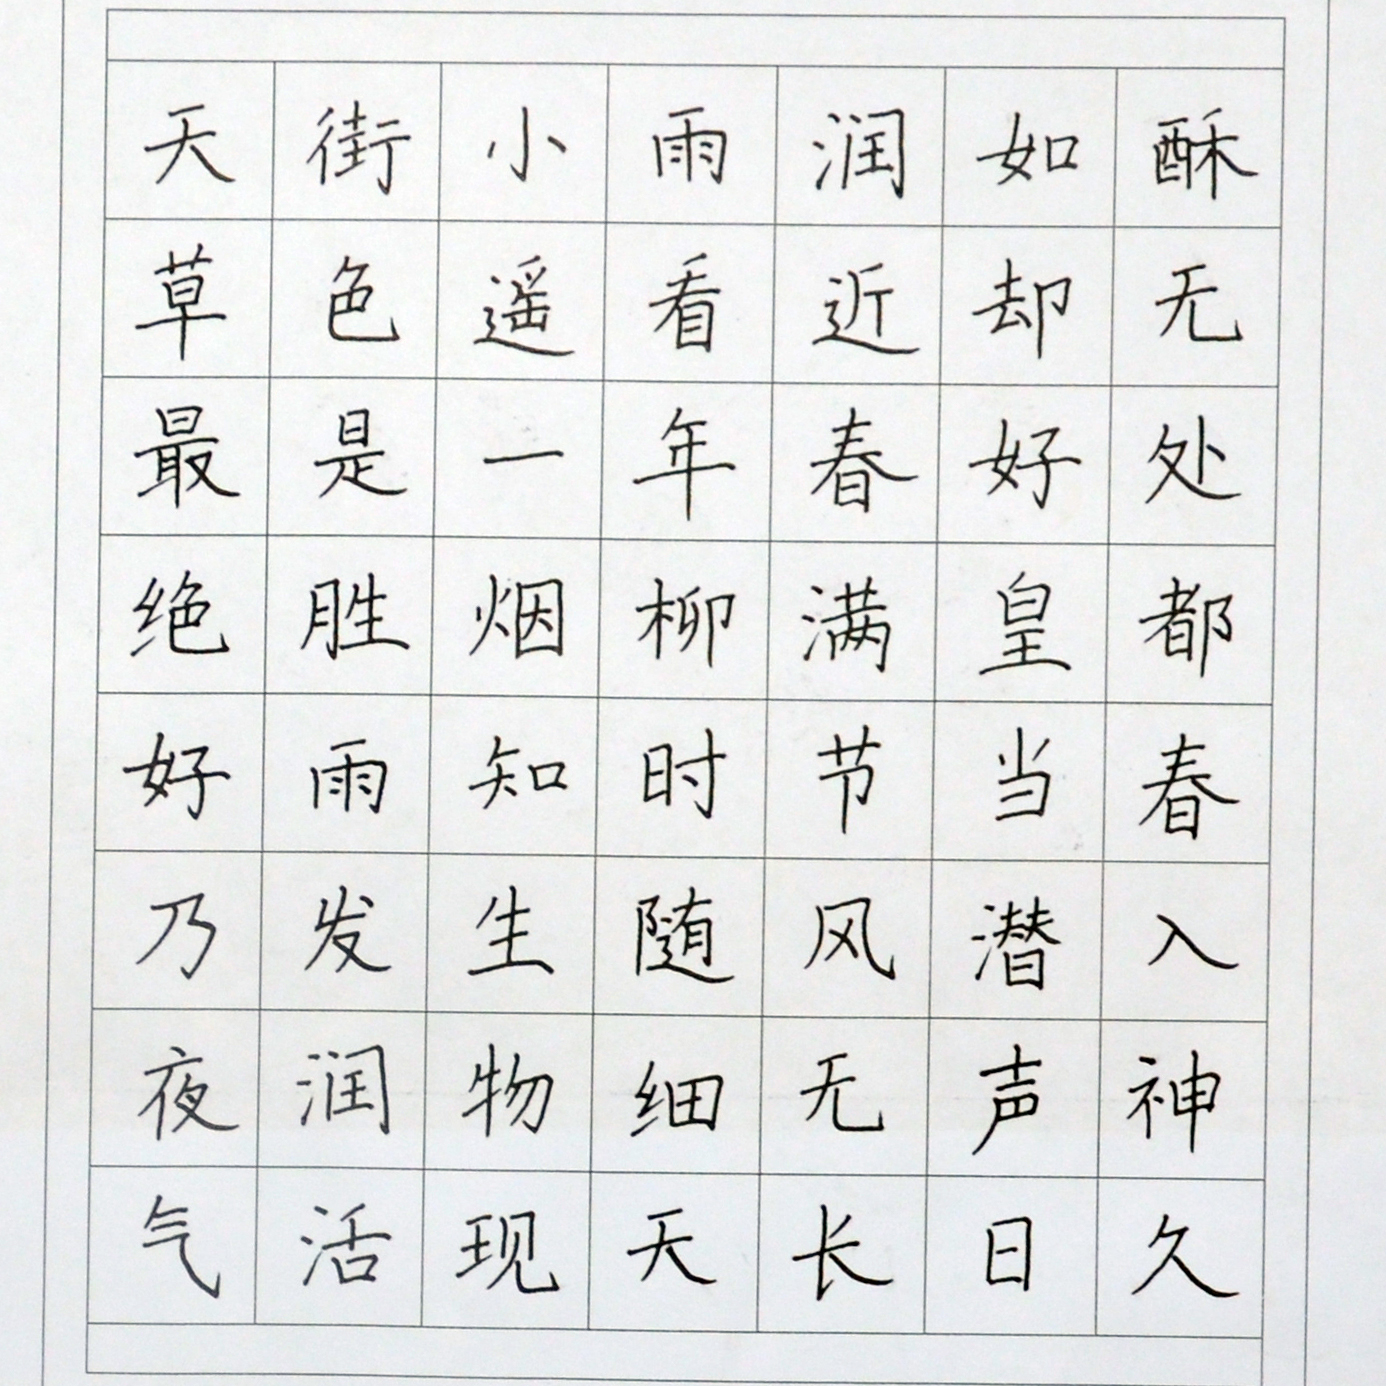 天街小雨润如酥
草色遥看近却无
最是一年春好处
绝胜烟柳满皇都
好雨知时节当春
乃发生随风潜入
夜润物细无声神
气活现天长日久